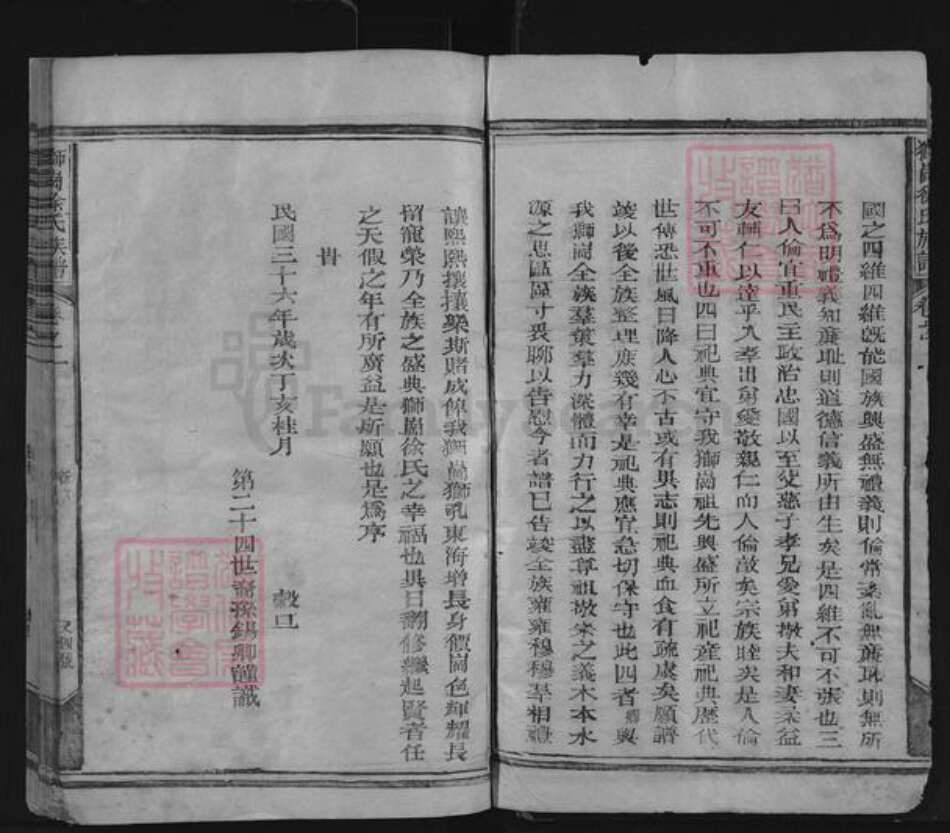 國之四維四維既能國族興盛無禮義則倫常紊亂無廉耻則無所
不爲明禮義知廉耻則道德信義所由生矣是四維不可不張也三
曰人倫宜重民主政治忠國以至父慈子孝兄愛弟敬夫和妻柔益
友輔仁以達乎入孝出弟愛敬親仁而人倫敦矣宗族睦矣是人倫
不可不重也四曰祀典宜守我獅崗祖先興盛所立祀產祀典歷代
世傳恐世風日降人心不古或有異志則祀典血食有疏虞矣願譜
竣以後全族整理庶幾有幸是祀典應宜急切保守也此四者卿與
我獅崗全族羣策羣力深體而力行之以盡尊祖敬宗之義木本水
源之思區區寸衷聊以告慰今者譜已告竣全族雍雍穆穆羣相禮
讓熙熙攘攘樂斯賭成俾我獅崗獅吼東海增長身價崗色輝耀長
留寵榮乃全族之盛典獅崗徐氏之幸福也異日翻修繼起賢者任
之天假之年有所廣益是所願也是爲序
旹
民國三十六年歲次丁亥桂月 穀旦
第二十四世裔孫錫卿謹識
獅崗徐氏族譜
獅崗徐氏族譜